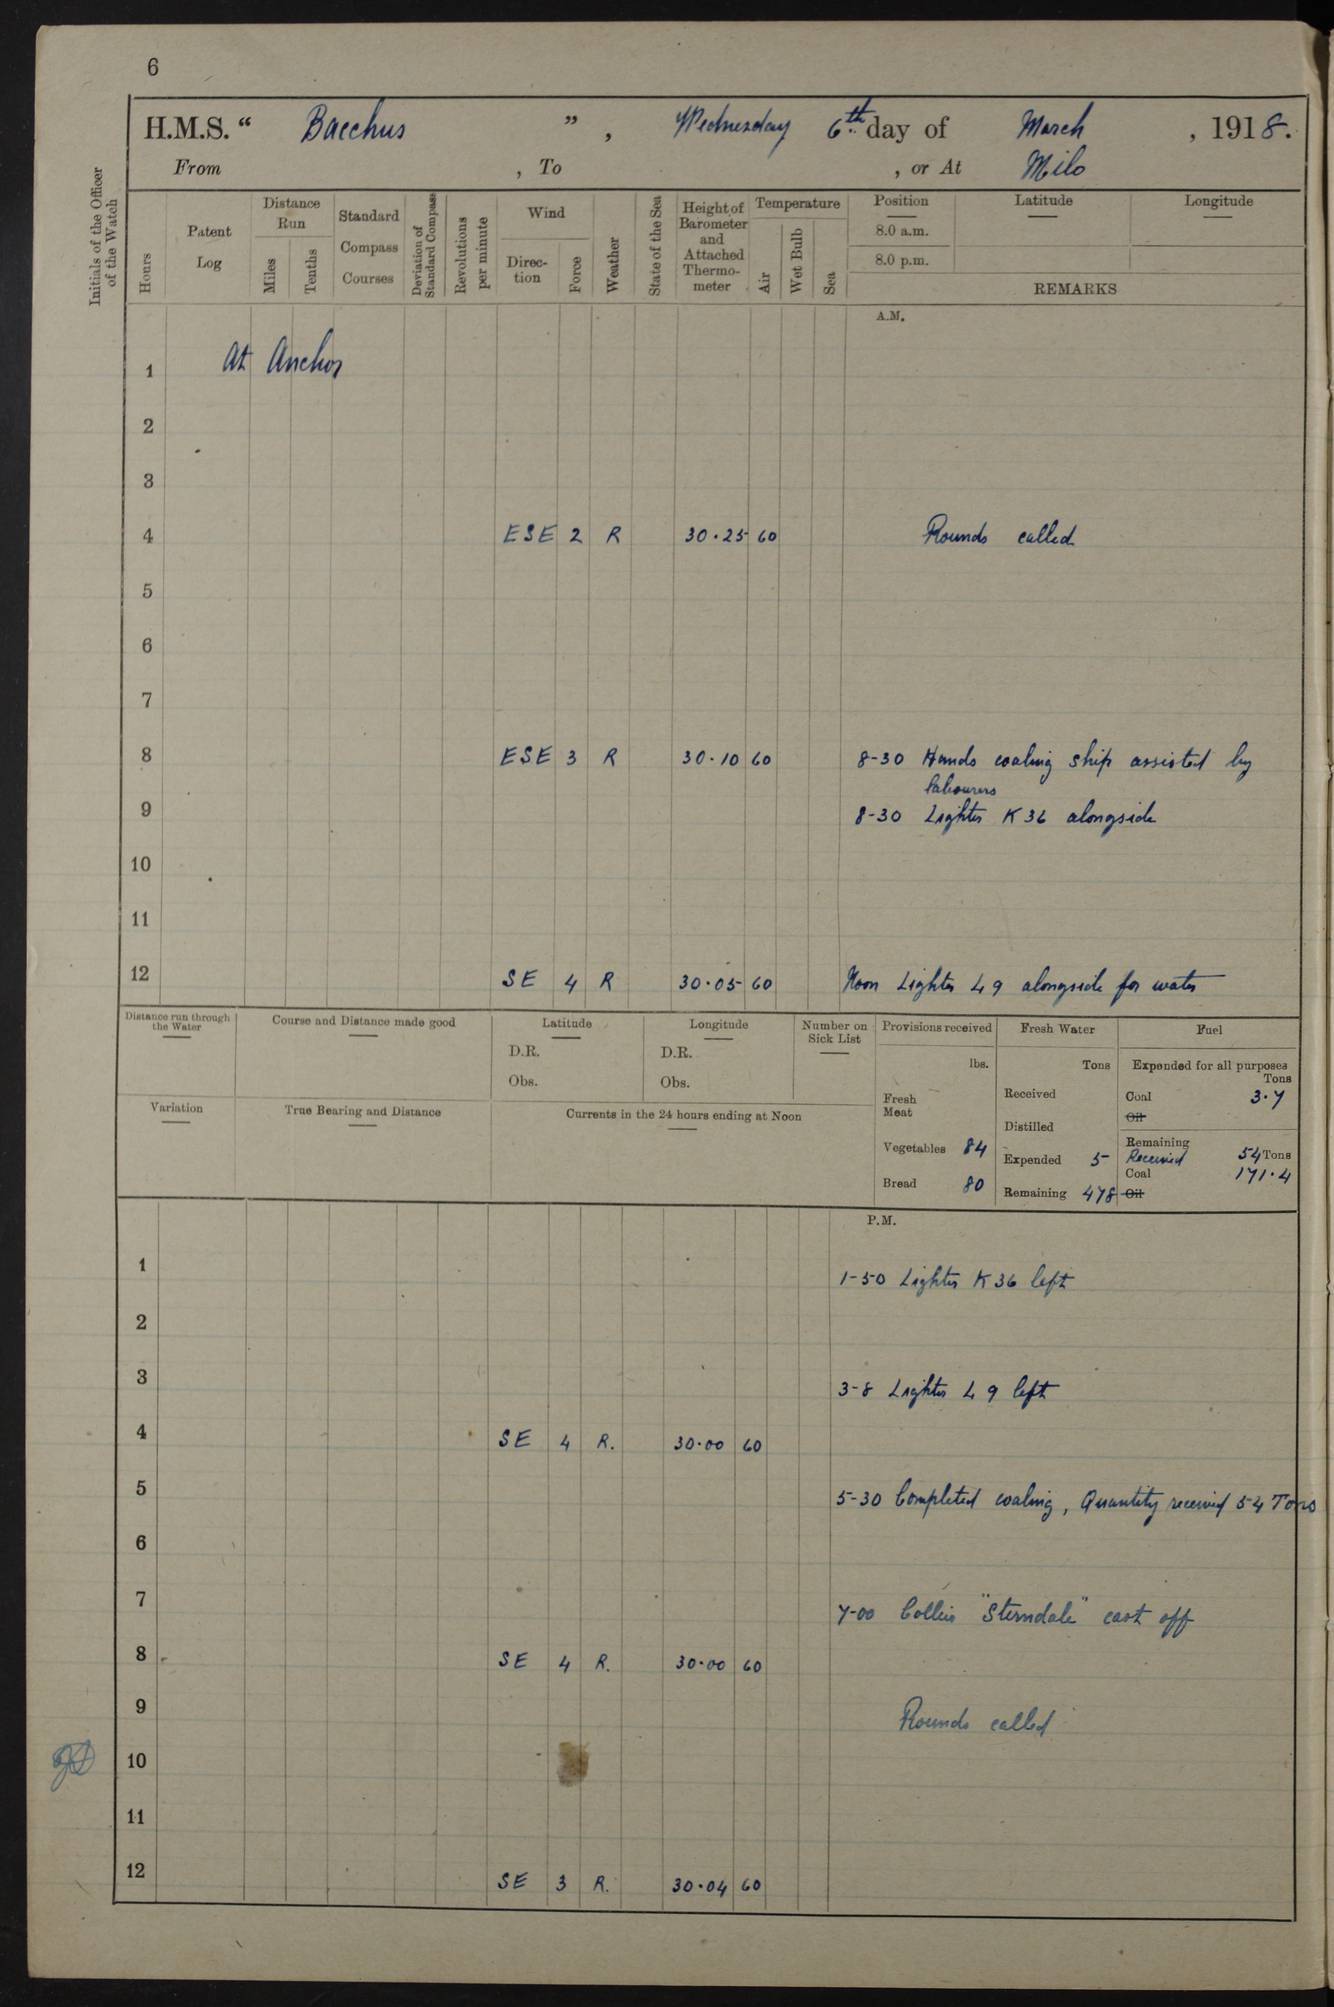 6
H.M.S. “ Bacchus ” , Wednesday 6th day of March , 1918.
From , To , or At Milo
Initials of the Officer of the Watch
Hours
Patent Log
Distance Run
Miles
Tenths
Standard Compass Courses
Deviation of Standard Compass
Revolutions per minute
Wind
Direc-tion
Force
Weather
State of the Sea
Height of Barometer and Attached Thermo-meter
Temperature
Air
Wet Bulb
Sea
Position
8.0 a.m.
8.0 p.m.
Latitude
Longitude
REMARKS
A.M.
1 At Anchor
2
3
4 ESE 2 R 30.25 60 Rounds called
5
6
7
8 ESE 3 R 30.10 60 8-30 Hands coaling ship assisted by
labourers
9 8-30 Lighter K 36 alongside
10
11
12 SE 4 R 30.05 60 Noon Lighter L 9 alongside for water
Distance run through the Water
Course and Distance made good
Latitude
D.R.
Obs.
Longitude
D.R.
Obs.
Number on Sick List
Provisions received
lbs.
Fresh Meat
Vegetables 84
Bread 80
Fresh Water
Tons
Received
Distilled
Expended 5
Remaining 478
Fuel
Expended for all purposes
Tons
Coal 3.7
Oil
Remaining
Received 54 Tons
Coal 171.4
Oil
Variation
True Bearing and Distance
Currents in the 24 hours ending at Noon
P.M.
1 1-50 Lighter K 36 left
2
3 3-8 Lighter L 9 left
4 SE 4 R. 30.00 60
5 5-30 Completed coaling, Quantity received 54 Tons
6
7 7-00 Collier "Sterndale" cast off
8 SE 4 R. 30.00 60
9 Rounds called
10
11
12 SE 3 R. 30.04 60